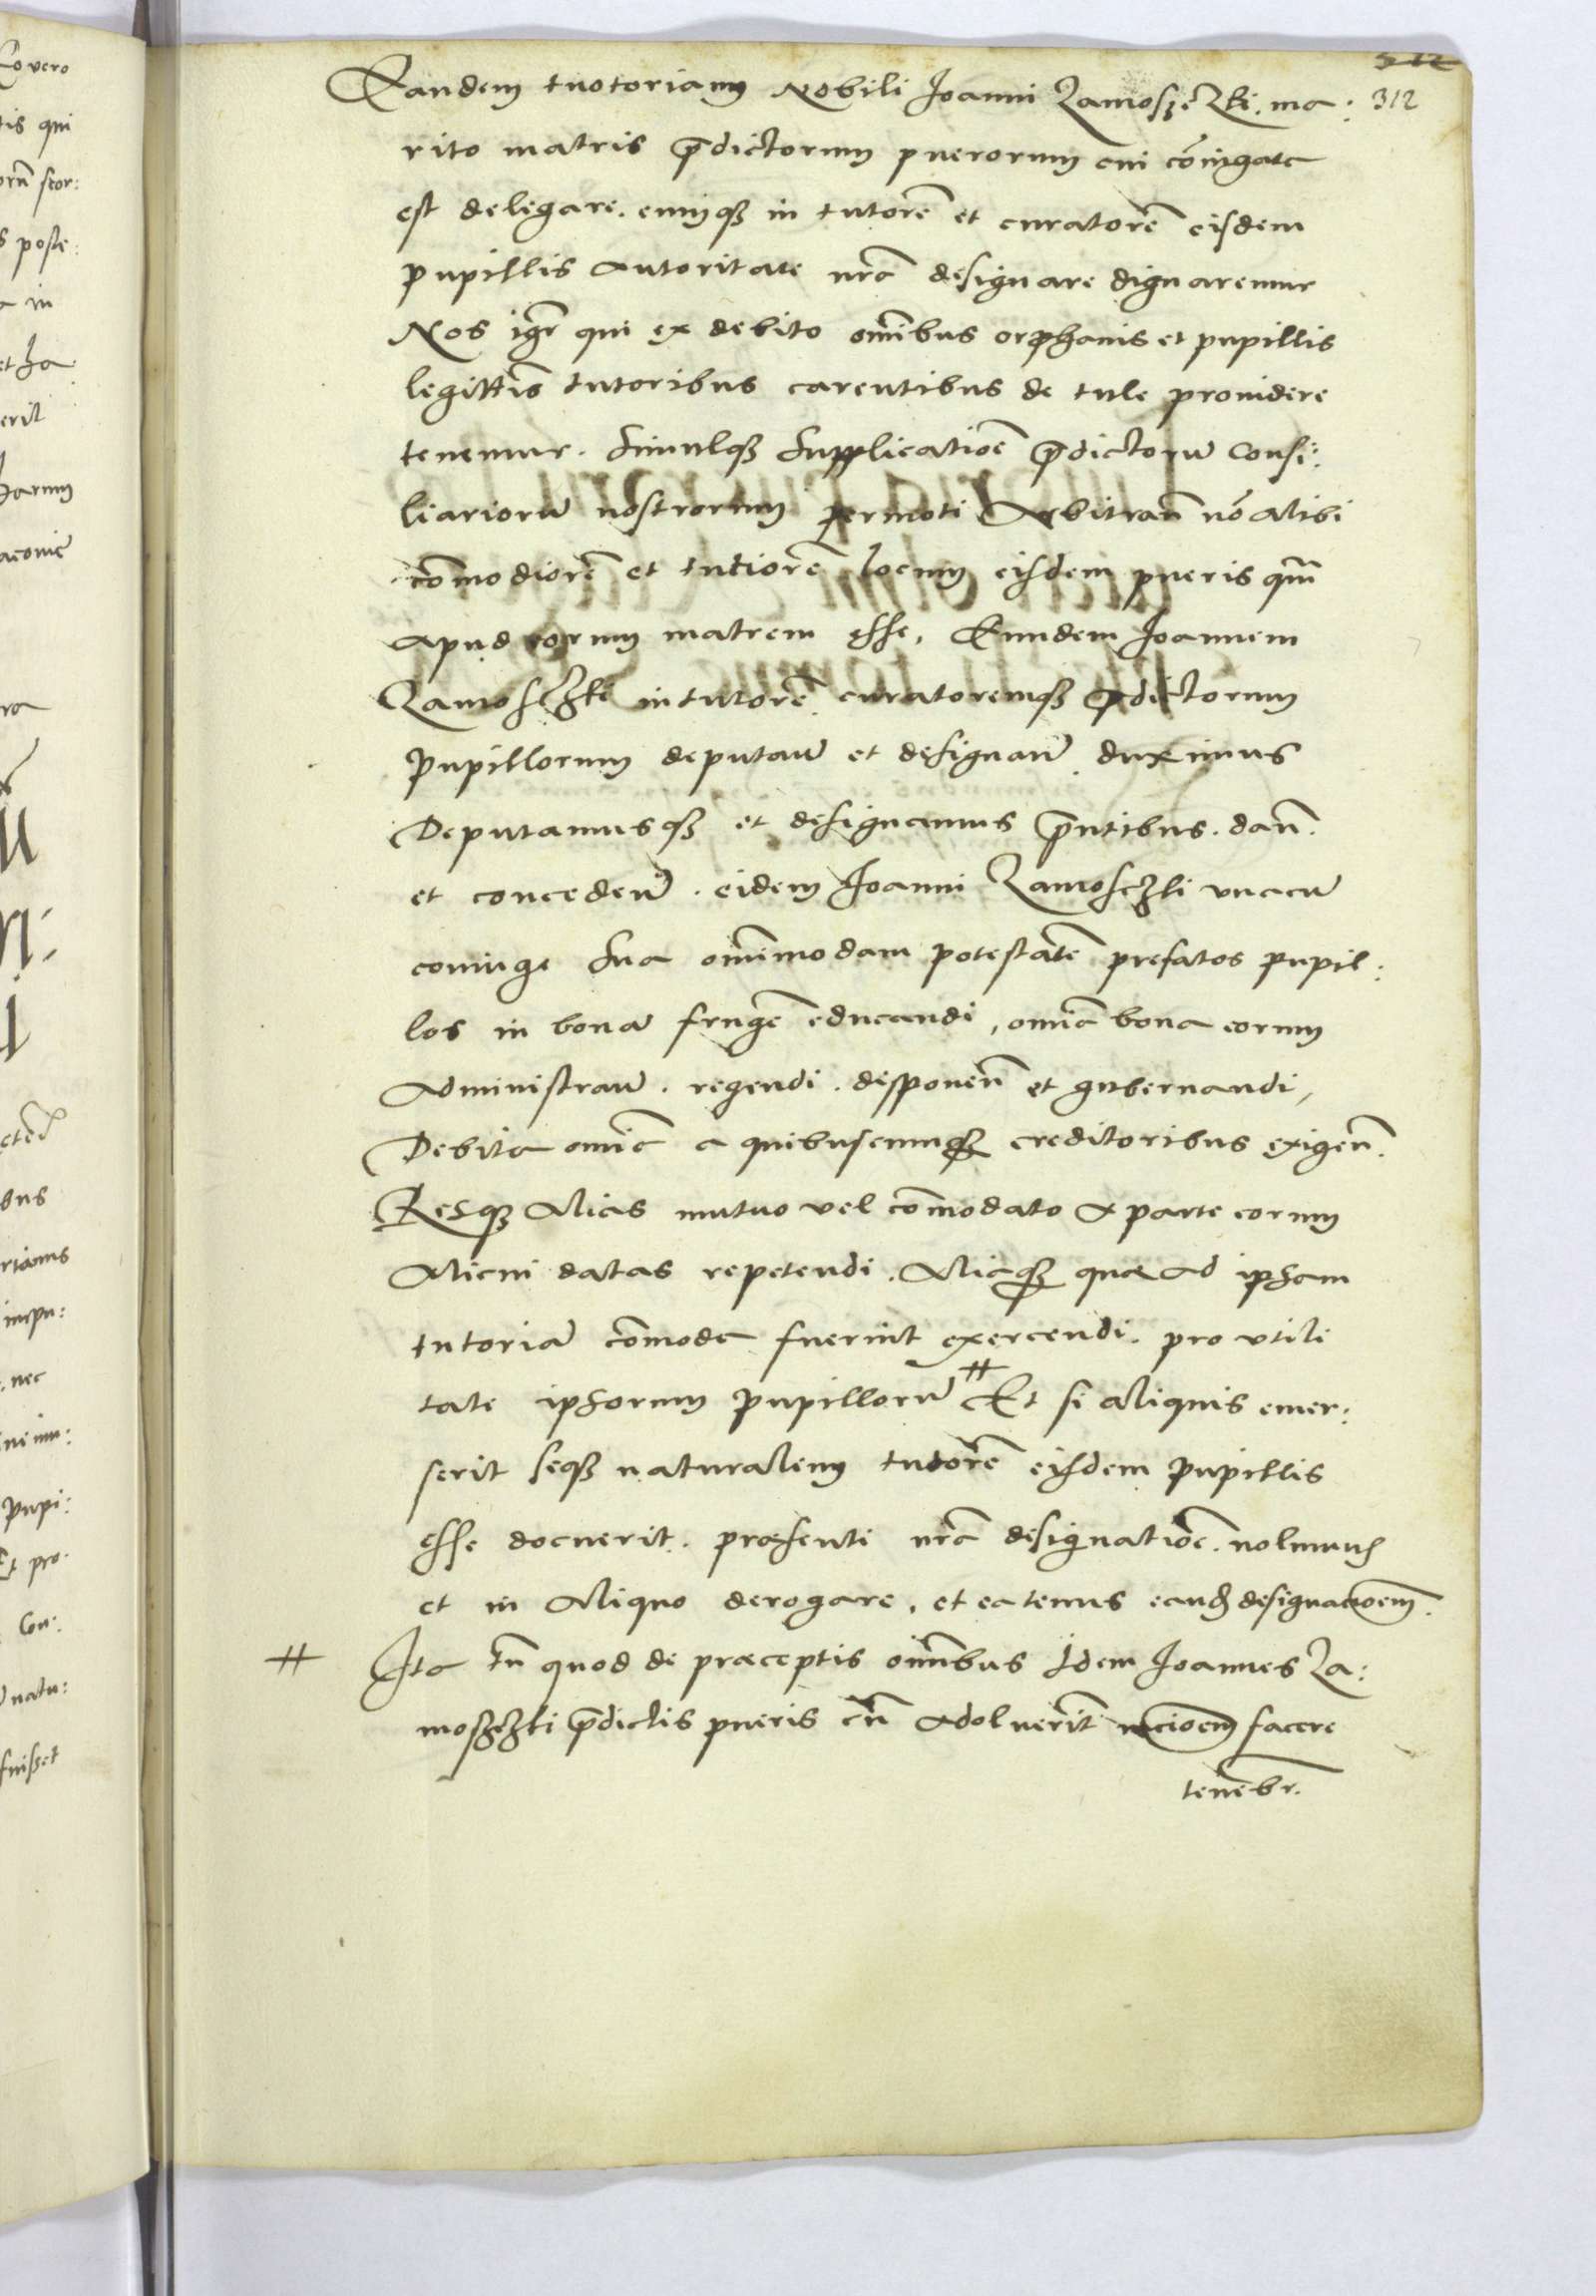 312
Eandem tuotoriam Nobili Joanni Zamoszczki. ma:
rito matris p̄dictorum puerorum cui cōiugata
est delegare. eumq3 in tutorē et curatorē eisdem
pupillis autoritate nr̄a designare dignaremur
Nos igr̄ qui ex debito om̄ibus orphanis et pupillis
legittīs tutoribus carentibus de tule prouidere
tenemur. simulq3 supplicatiōe p̄dictorū consi:
liariorū nostrorum permoti Arbitran̄ nō alibi
cōmodiorē et tutiorē locum eisdem pueris qm̄
apud eorum matrem esse, Eundem Joannem
Zamosczki in tutorē curatoremq3 p̄dictorum
pupillorum deputan̄ et designan̄ duximus
Deputamusq3 et designamus p̄ntibus. dan̄.
et conceden̄. eidem Joanni Zamosczki vnacū
coniuge sua om̄imodam potestatē prefatos pupil:
los in bonā frugē educandi, omīa bona eorum
administran̄. regendi. disponen̄ et gubernandi,
Debita omīa a quibuscunq3 creditoribus exigen̄.
Resq3 alias mutuo vel cōmodato a parte eorum
alicui datas repetendi. Aliaq3 quae ad ipsam
tutoriā cōmoda fuerint exercendi. pro utili
tate ipsorum pupillorū # Et si aliquis emer:
serit seq3 naturalem tutorē eisdem pupillis
esse docuerit. praesenti nr̄a designatiōe. nolumus
et in aliquo derogare, et eatenus eand designationem.
# Ita tn̄ quod de praeceptis om̄ibus idem Joannes Za:
moszczki p̄dictis pueris cū adoluerīt racionem facere
tenebr.